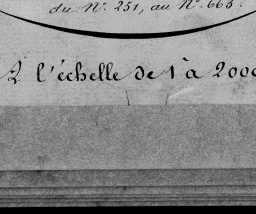 du N.º 251, au N.º 665.
à l'échelle de 1 à 2000